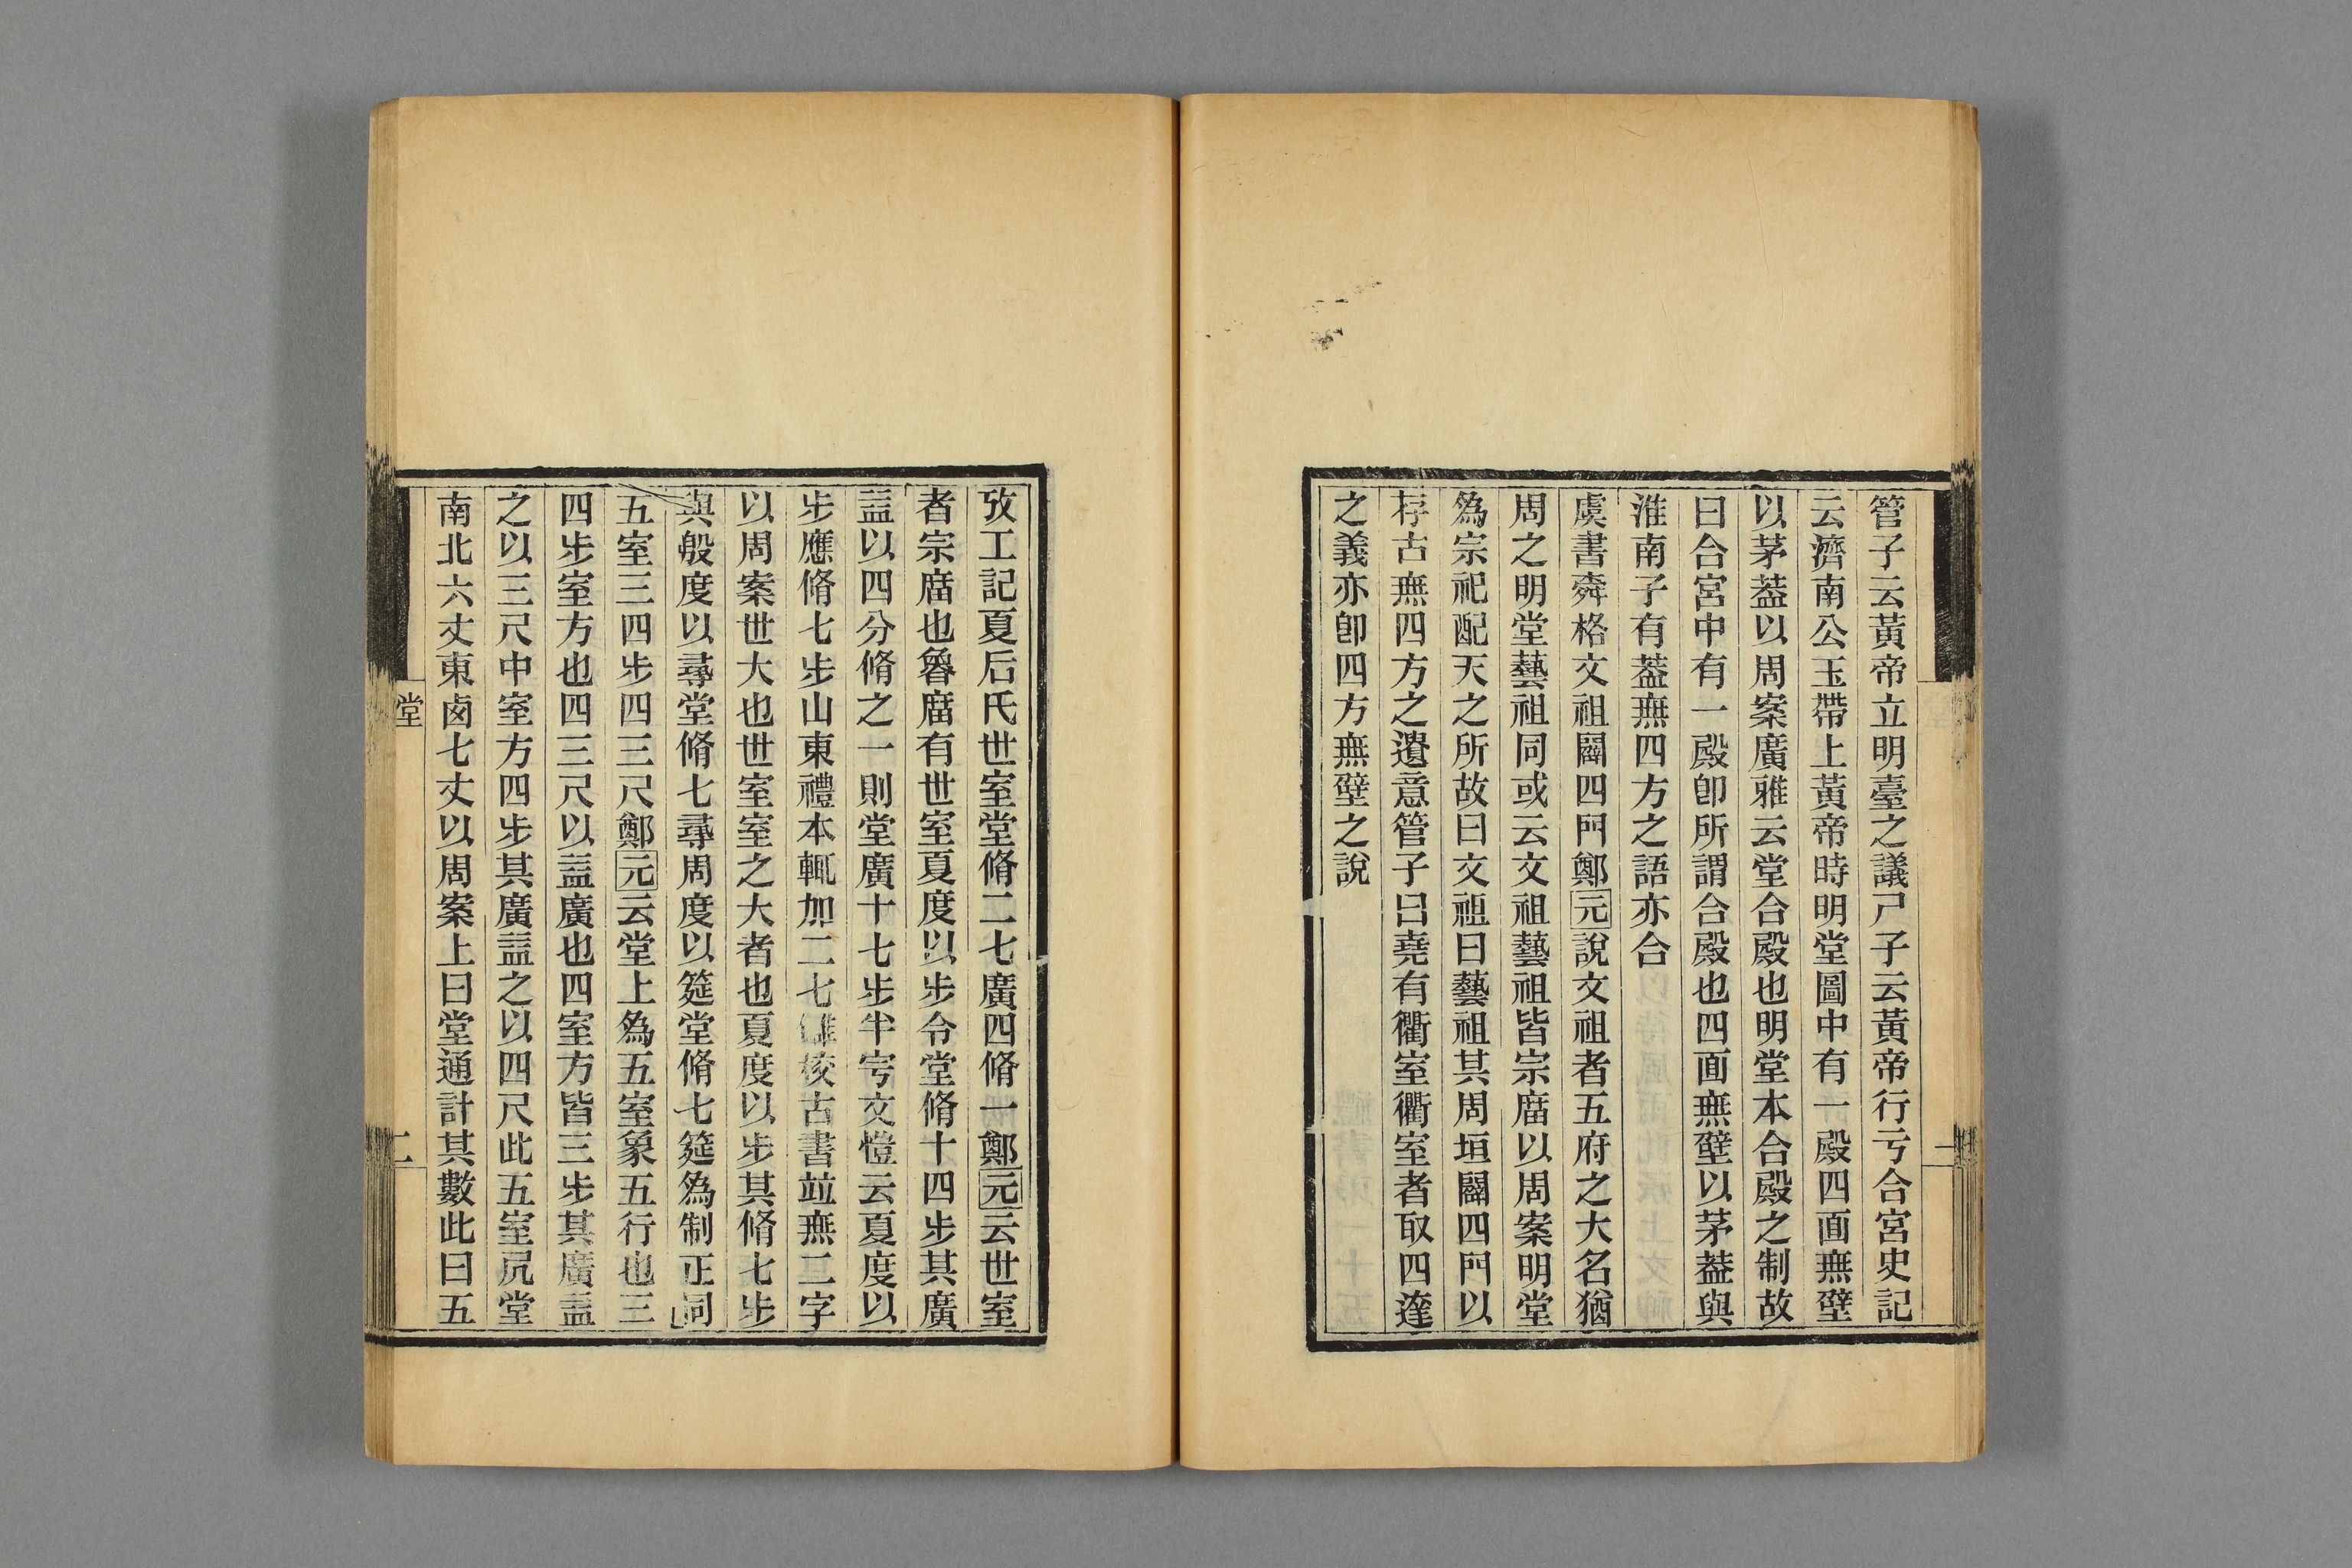 管子云黃帝立明臺之議尸子云黃帝行亏合宮史記
云濟南公玉帶上黃帝時明堂圖中有一殿四面𣞤壁
以茅葢以周案廣雅云堂合殿也明堂本合殿之制故
曰合宮中有一殿卽所謂合殿也四面𣞤壁以茅葢與
淮南子有葢𣞤四方之語亦合
虞書舜格文祖闢四門鄭元說文祖者五府之大名猶
周之明堂藝祖同或云文祖藝祖皆宗庿以周案明堂
爲宗祀配天之所故曰文祖曰藝祖其周垣闢四門以
存古𣞤四方之遺意管子曰堯有衢室衢室者取四達
之義亦卽四方𣞤壁之說
攷工記夏后氏世室堂脩二七廣四脩一鄭元云世室
者宗庿也魯庿有世室夏度以步令堂脩十四步其廣
益以四分脩之一則堂廣十七步半宇文愷云夏度以
步應脩七步山東禮本輒加二七讎校古書竝𣞤二字
以周案世大也世室室之大者也夏度以步其脩七步
與殷度以尋堂脩七尋周度以筵堂脩七筵爲制正同
五室三四步四三尺鄭元云堂上爲五室象五行也三
四步室方也四三尺以益廣也四室方皆三步其廣益
之以三尺中室方四步其廣益之以四尺此五室凥堂
南北六丈東卤七丈以周案上曰堂通計其數此曰五
堂
二